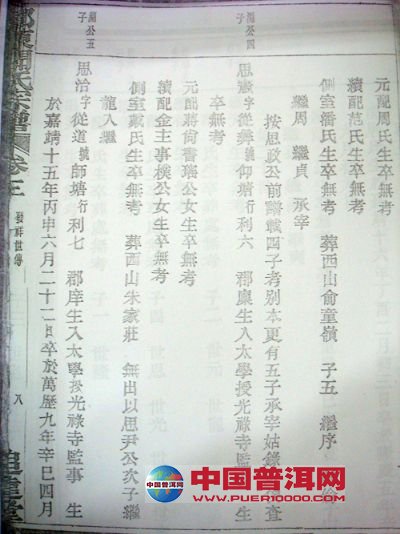 元配周氏生卒無考
續配范氏生卒無考
側室潘氏生卒無考 葬西山俞童嶺 子五 繼序
繼周 繼貞 承宰
按思政公前譜載四子考別本更有五子承宰姑錄 查
公四子
思憲字從彝號仰塘行利六 郡廩生入太學授光祿寺監
卒無考
元配蔣尚書瑞公女生卒無考
續配金主事模公女生卒無考
側室戴氏生卒無考 葬西山朱家莊 無出以思尹公次子繼
龍入繼
公五子
思治字從道號師塘行利七 郡庠生入太學授光祿寺監事 生
於嘉靖十五年丙申六月二十二日卒於萬歷九年辛巳四月
卷二
八
中国普洱网
WWW.PUER10000.COM